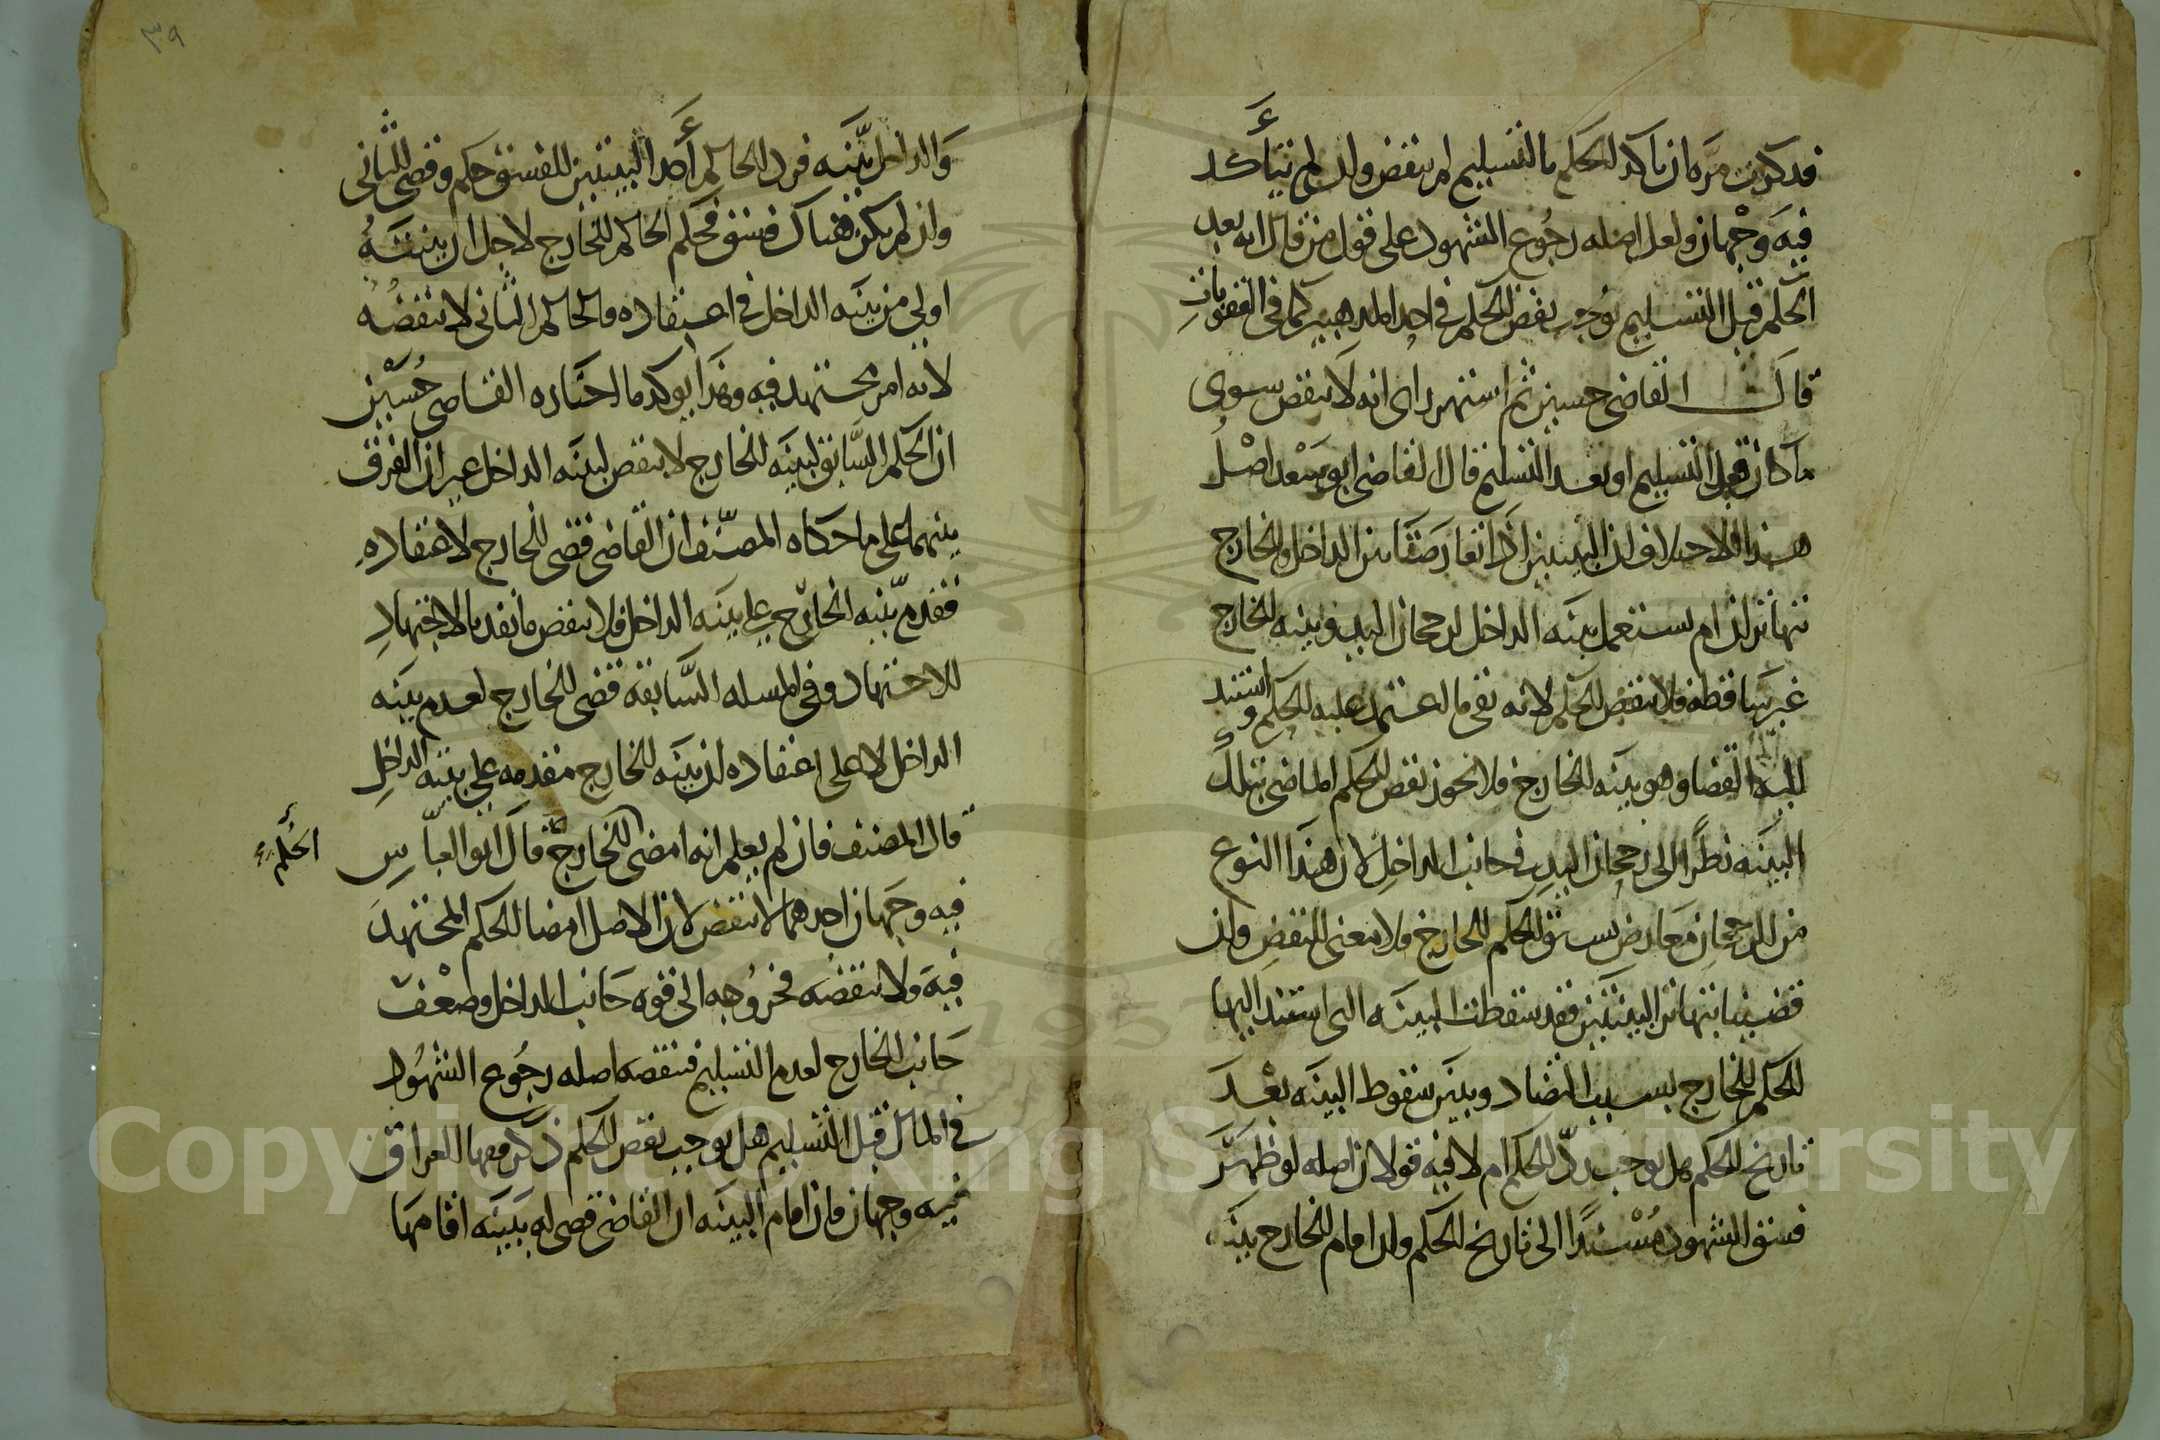 فذكرت مرة ان تاكد الحكم بالتسليم لم ينقض وان لم يتأكد
فيه وجهان ولعل اصله رجوع الشهود على قول من قال انه بعد
الحكم قبل التسليم يوجب نقض الحكم في احد المذهبين كما في العقوبات
قال القاضي حسين ثم استقر راى انه لا ينقض سوى
ما كان قبل التسليم او بعد التسليم قال القاضي ابو سعد اصل
هذا الاختلاف ان البينتين اذا تعارضتا من الداخل والخارج
تتهاتران ام يستعمل بينه الداخل لرجحان اليد وبينه الخارج
غير ساقطه فلا ينقض الحكم لانه بقى ما اعتمد عليه الحكم واستند
اليه القضا وهو بينه الخارج فلا يجوز نقض الحكم الماضي بتلك
البينه نظرا الى رجحان اليد في جانب الداخل لان هذا النوع
من الرجحان معارض بسبق الحكم للخارج فلا معنى للنقض وان
قضينا بتهاتر البينتين فقد سقطت البينه التى استند اليها
الحكم للخارج بسبب التضاد وبين سقوط البينه بعد
تاريخ الحكم هل يوجب رد الحكم ام لا فيه قولان اصله لو ظهر
فسق الشهود مسندا الى تاريخ الحكم وان اقام الخارج بينه
٣٩
والداخل بينه فرد الحاكم أحد البينتين للفسق حكم وقضى للثاني
وان لم يكن هناك فسق فحكم الحاكم للخارج لاجل ان بينته
اولى من بينه الداخل في اعتقاده فالحاكم الثاني لا ينقضه
لانه امر مجتهد فيه وهذا يوكد ما اختاره القاضي حسين
ان الحكم السابق لبينه الخارج لا ينقض لبينه الداخل غير ان الفرق
بينهما على ما حكاه المصنف ان القاضي قضى للخارج لاعتقاده
تقدم بينه الخارج على بينه الداخل فلا ينقض ما نفد بالاجتهاد
للاجتهاد وفي المسله السابقة قضى للخارج لعدم بينه
الداخل لا على اعتقاده ان بينه الخارج مقدمه على بينه الداخل
قال المصنف فان لم يعلم انه امضى للخارج قال ابو العباس
الحكم
فيه وجهان احدهما لا ينقض لان الاصل امضا الحكم المجتهد
فيه ولا ننقضه فخروجه الى قوه جانب الداخل وضعف
جانب الخارج لعدم التسليم فننقضه اصله رجوع الشهود
في المال قبل التسليم هل يوجب نقض الحكم ذكر فيها العراقي
فيه وجهان فان اقام البينه ان القاضي قضى له ببينه اقامها